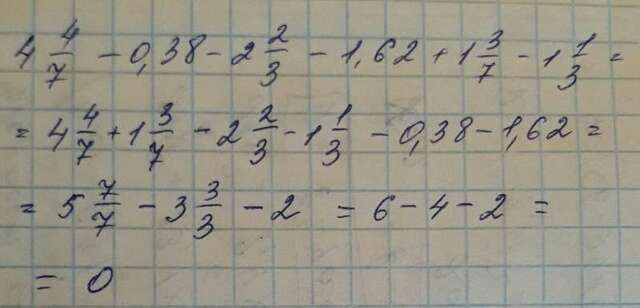 4 4/7 - 0,38 - 2 2/3 - 1,62 + 1 3/7 - 1 1/3 =
= 4 4/7 + 1 3/7 - 2 2/3 - 1 1/3 - 0,38 - 1,62 =
= 5 7/7 - 3 3/3 - 2 = 6 - 4 - 2 =
= 0